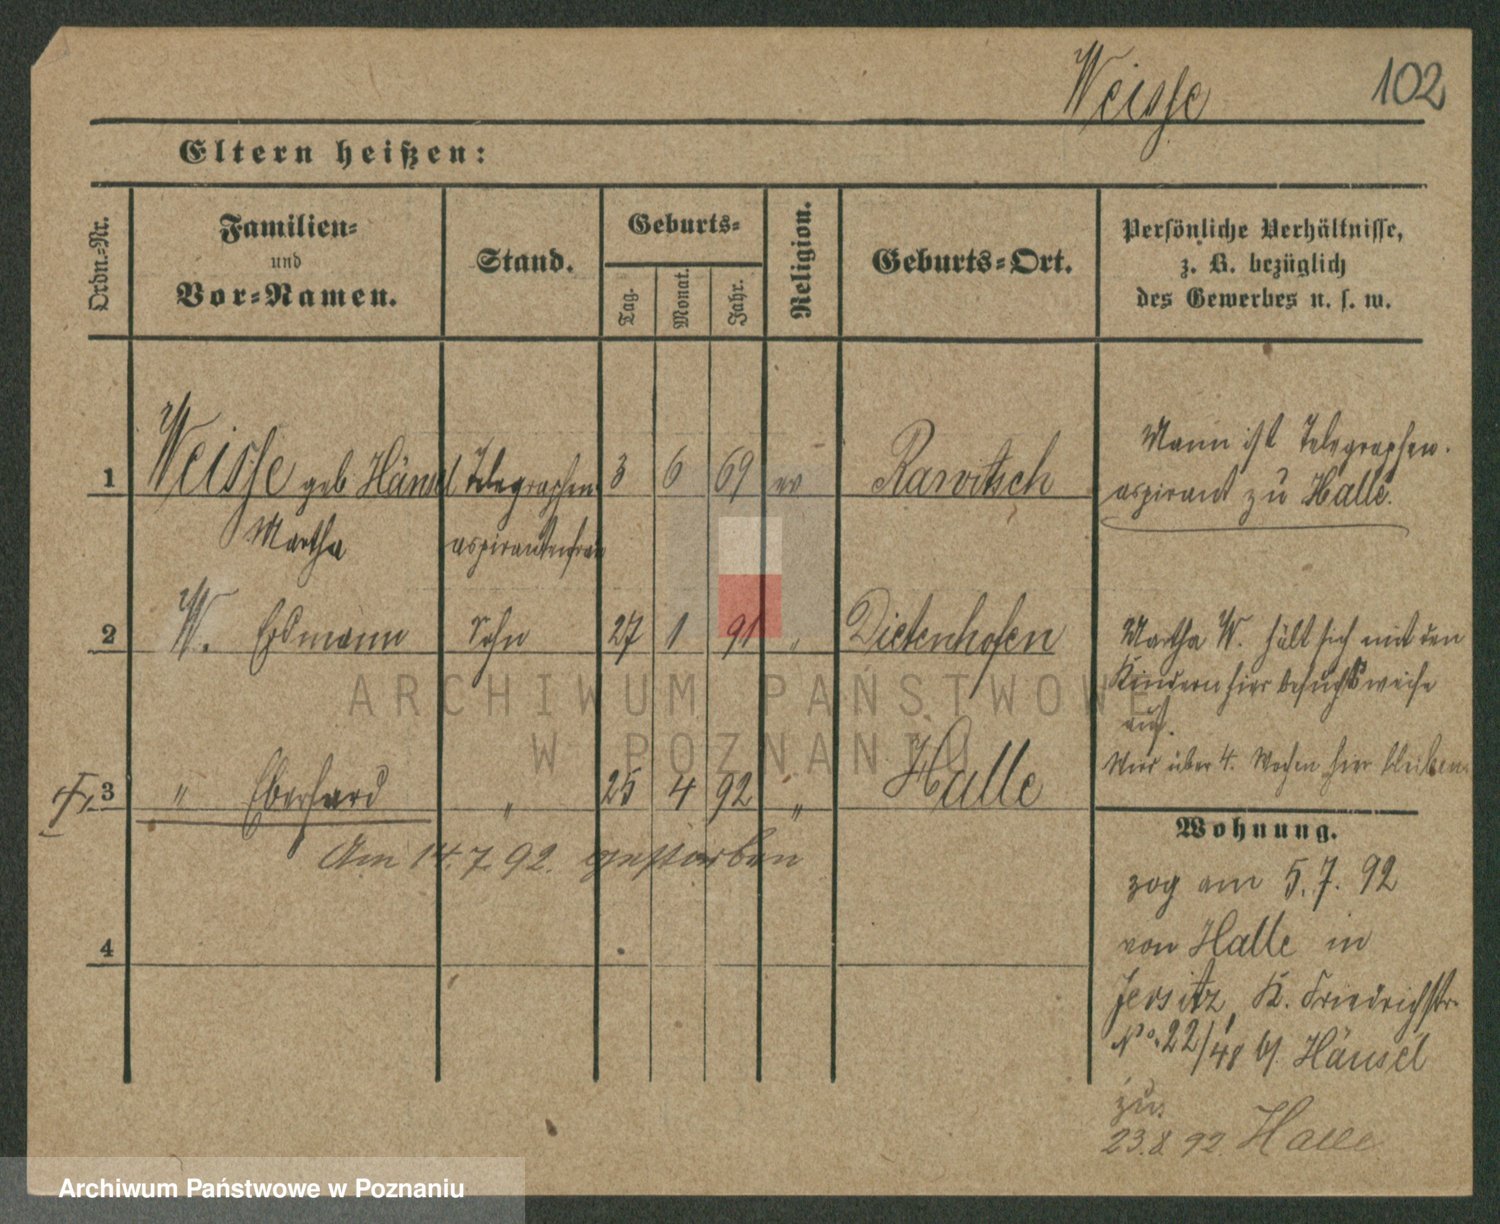 Weisse 102
Eltern heißen:
Ordn.-Nr.
Familien-
und
Vor-Namen.
Stand.
Geburts-
Tag.
Monat.
Jahr.
Religion.
Geburts-Ort.
Persönliche Verhältnisse,
z. B. bezüglich
des Gewerbes u. s. w.
1 Weisse geb Hänsel Telegraphen- 3 6 69 ev Rawitsch
Martha aspirantenfrau
Mann ist Telegraphen-
aspirant zu Halle.
2 W. Erdmann Sohn 27 1 91 " Dietenhofen
Martha W. hält sich mit den
Kindern hier besuchsweise
auf.
Wird über 4. Wochen hier bleiben.
3 " Eberhard " 25 4 92 " Halle
Am 14.7.92. gestorben
4
Wohnung.
zog am 5.7.92
von Halle in
Jersitz, K. Friedrichstr.
No. 22/48 b/ Hänsel
zu.
23.8.92. Halle
ARCHIWUM PAŃSTWOWE
W POZNANIU
Archiwum Państwowe w Poznaniu